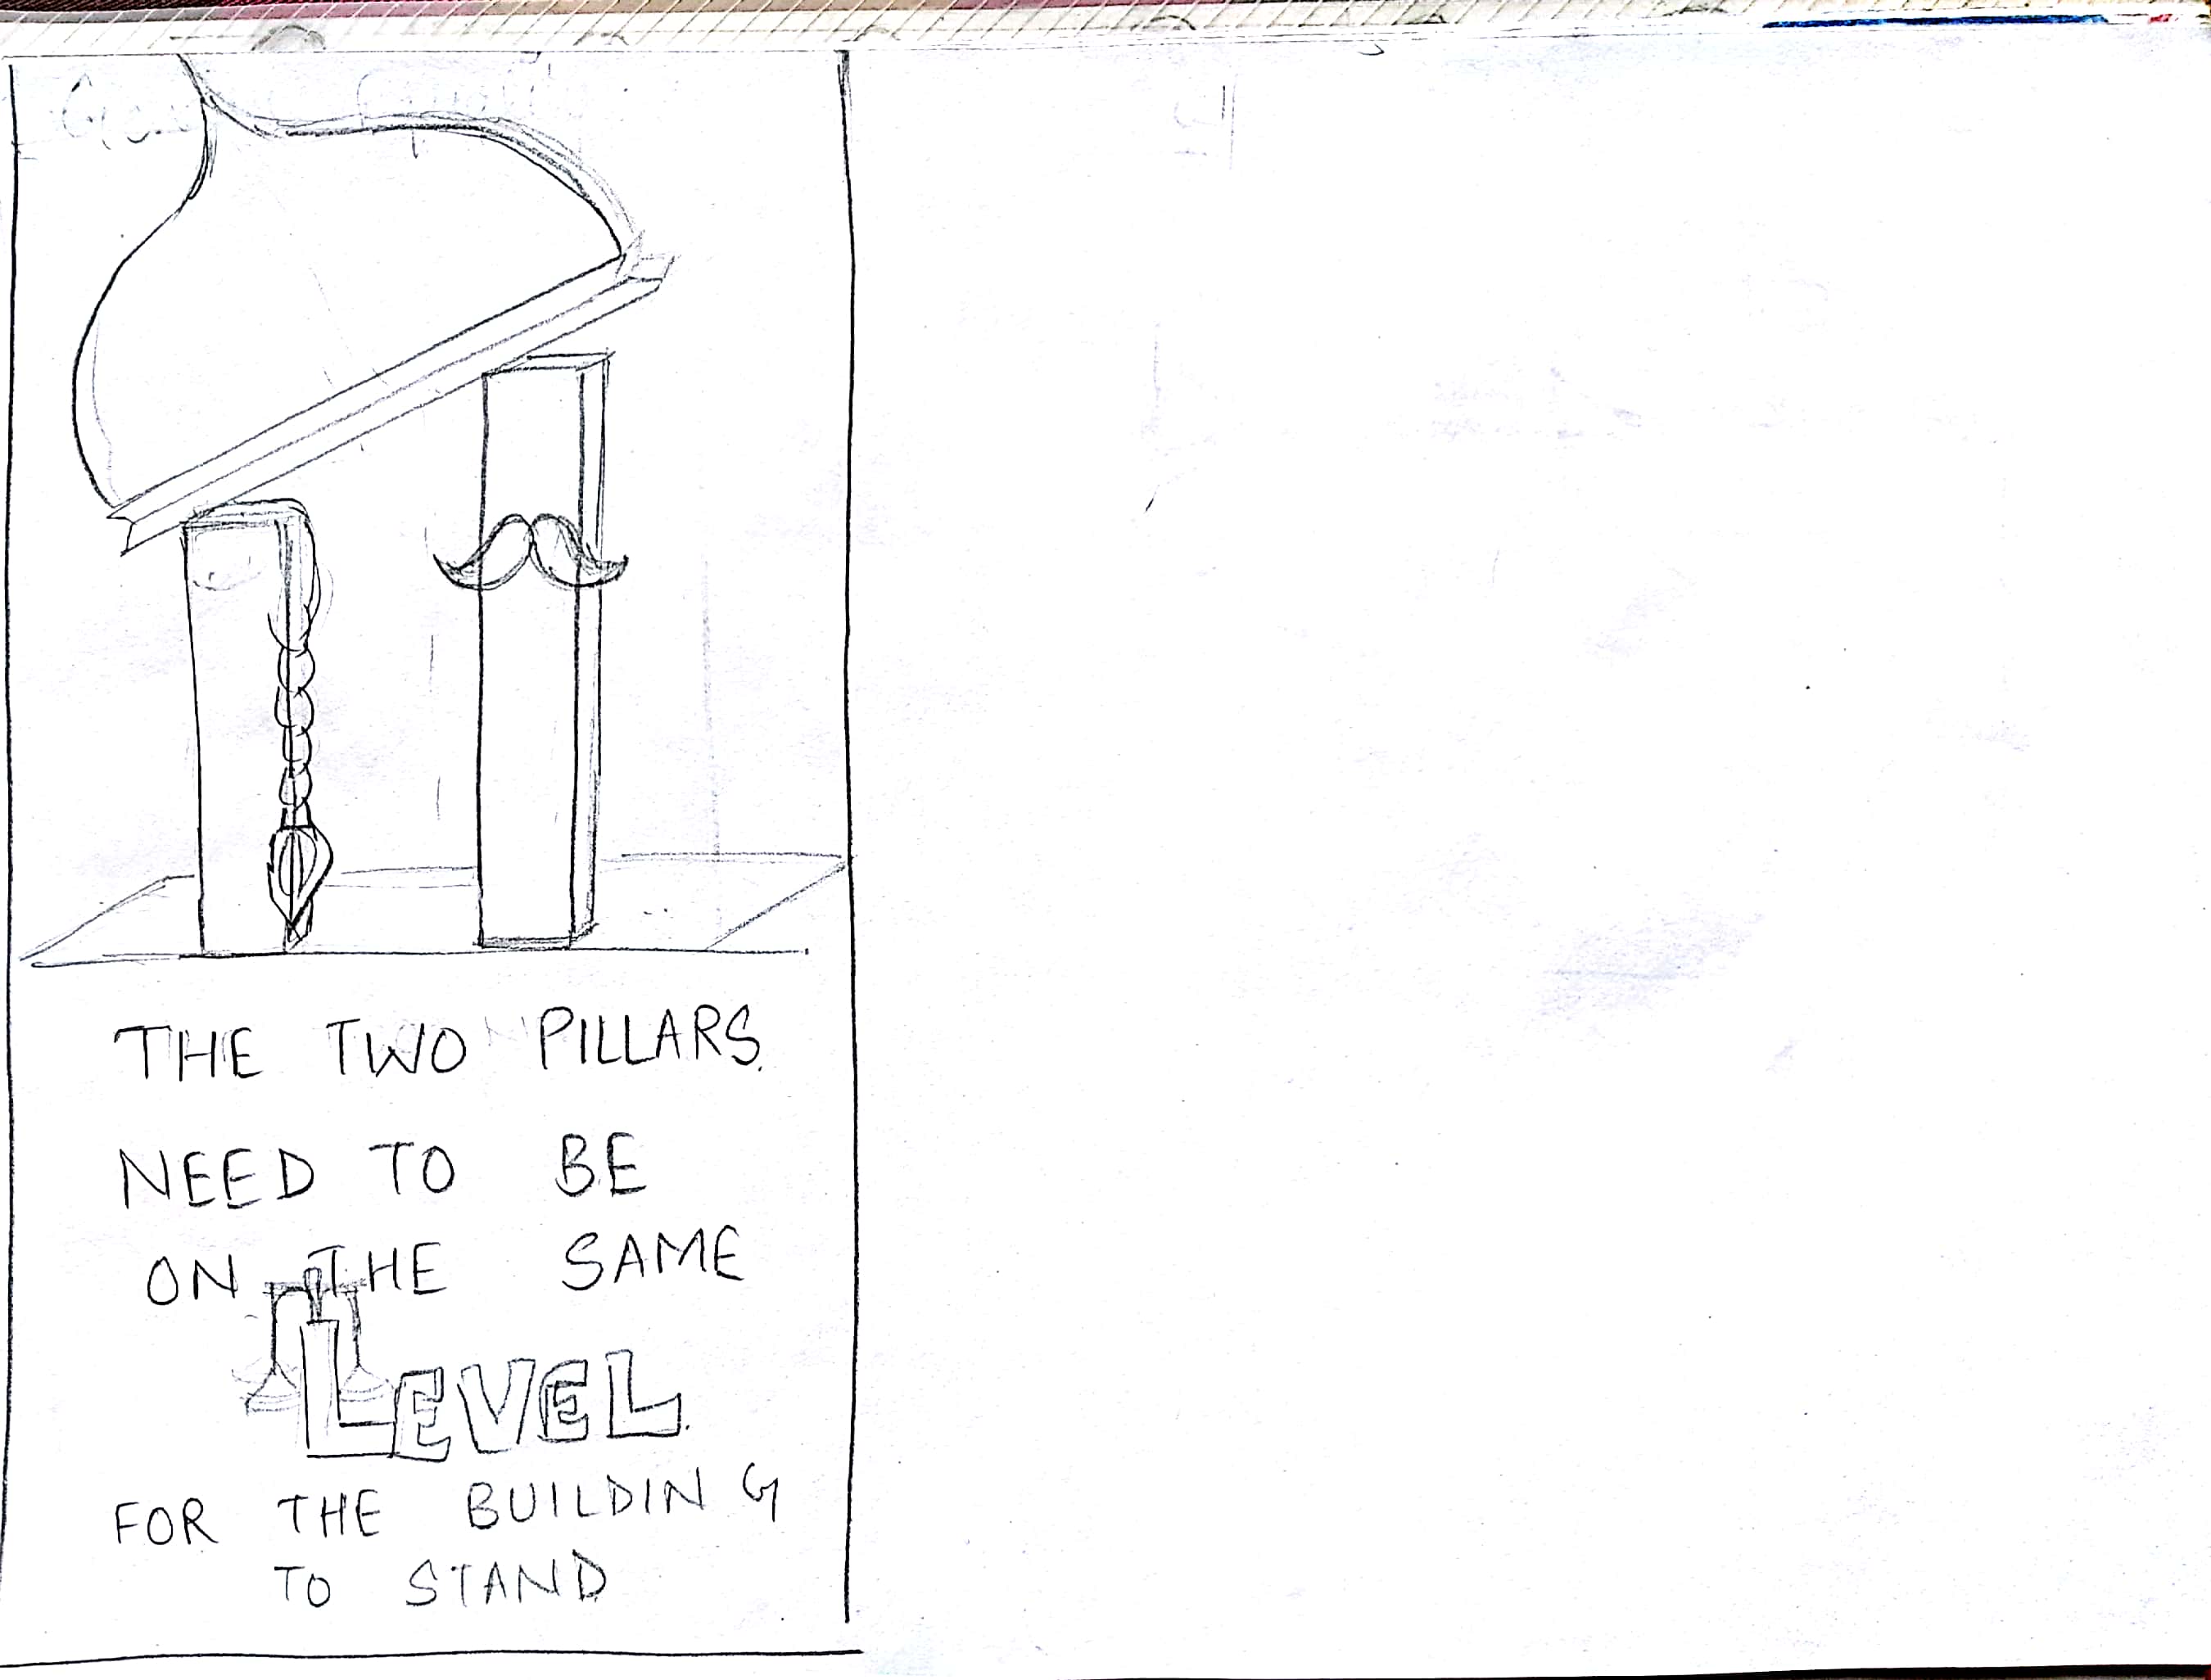 THE TWO PILLARS
NEED TO BE
ON THE SAME
LEVEL
FOR THE BUILDING
TO STAND